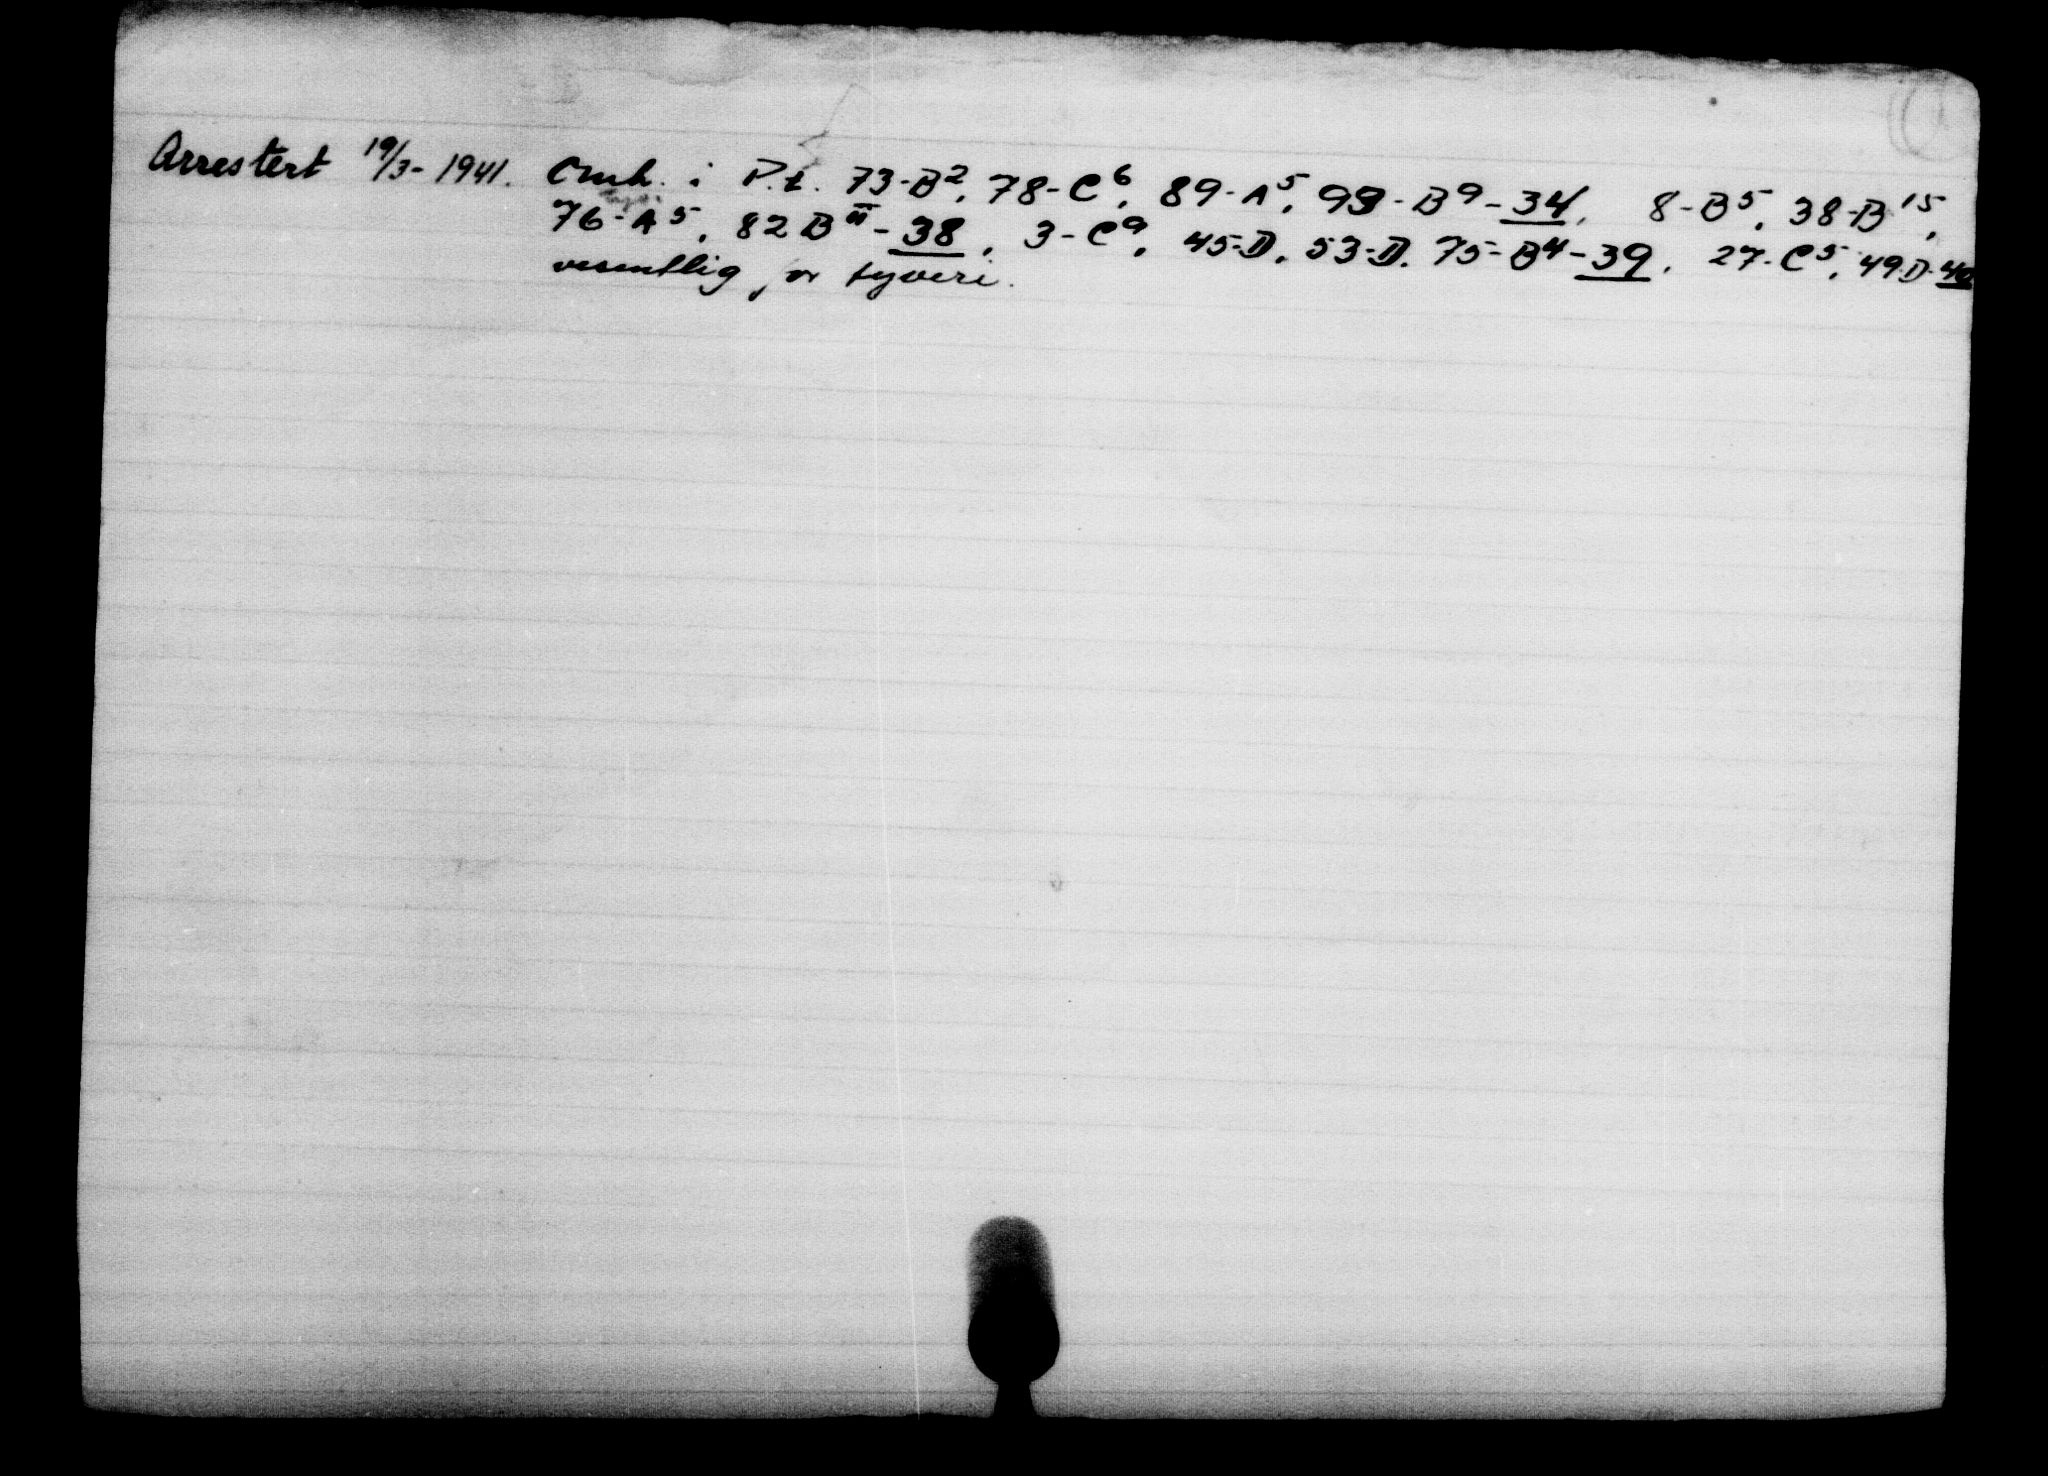 Arrestert 19/3-1941. Omh. i P.t. 73-B², 78-C⁶, 89-A⁵, 93-B⁹-34, 8-B⁵, 38-B¹⁵,
76-A⁵, 82 B¹¹-38, 3-C⁹, 45-D, 53-D, 75-B⁴-39, 27-C⁵, 49-D-40
vesentlig for tyveri.